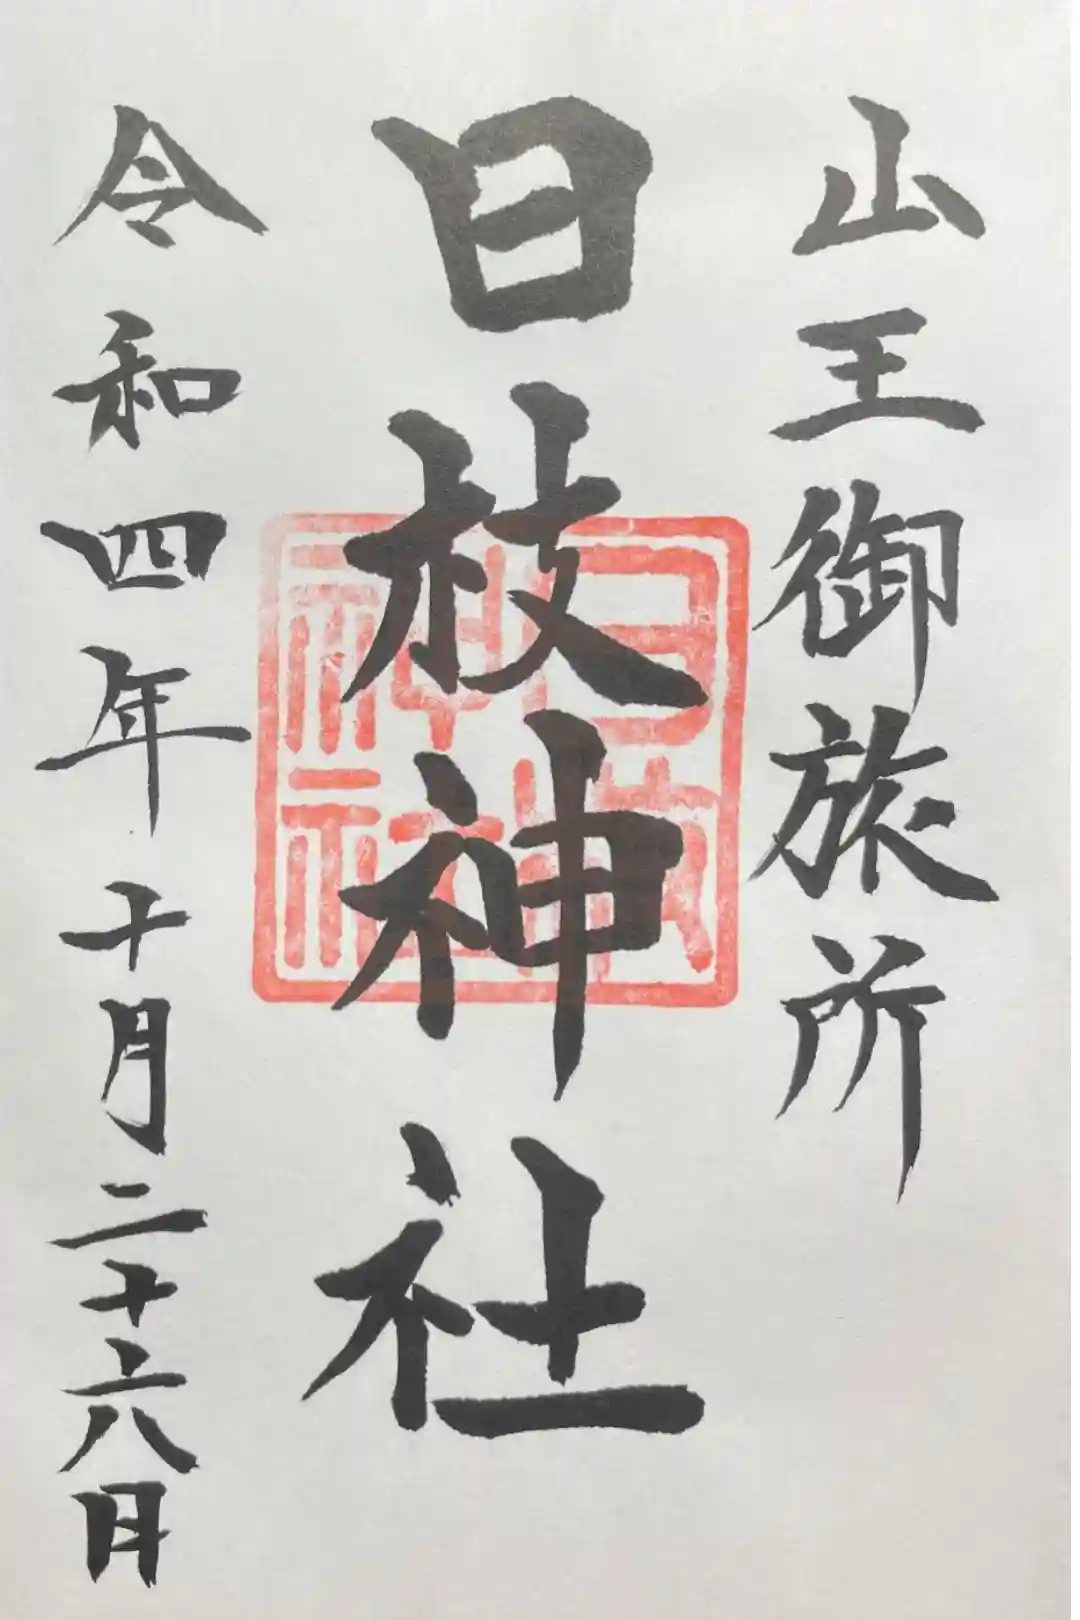 山王御旅所
日枝神社
令和四年十月二十六日
日枝
神社